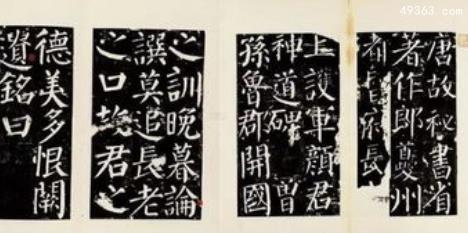 49363.com
唐故秘書省
著作郎夔州
都督府長
上護軍顏君
神道碑 曾
孫魯郡開國
之訓晚暮論
譔莫追長老
之口故君之
德美多恨闕
遺銘曰